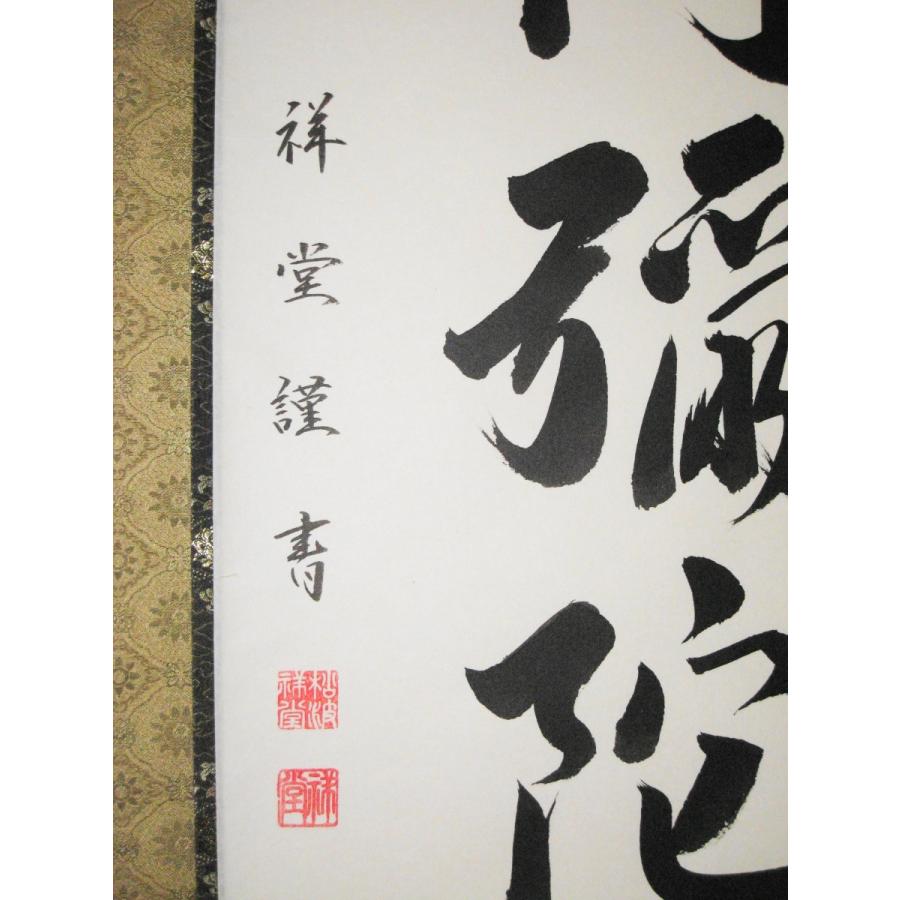 彌陀
祥堂謹書
松波祥堂
祥堂